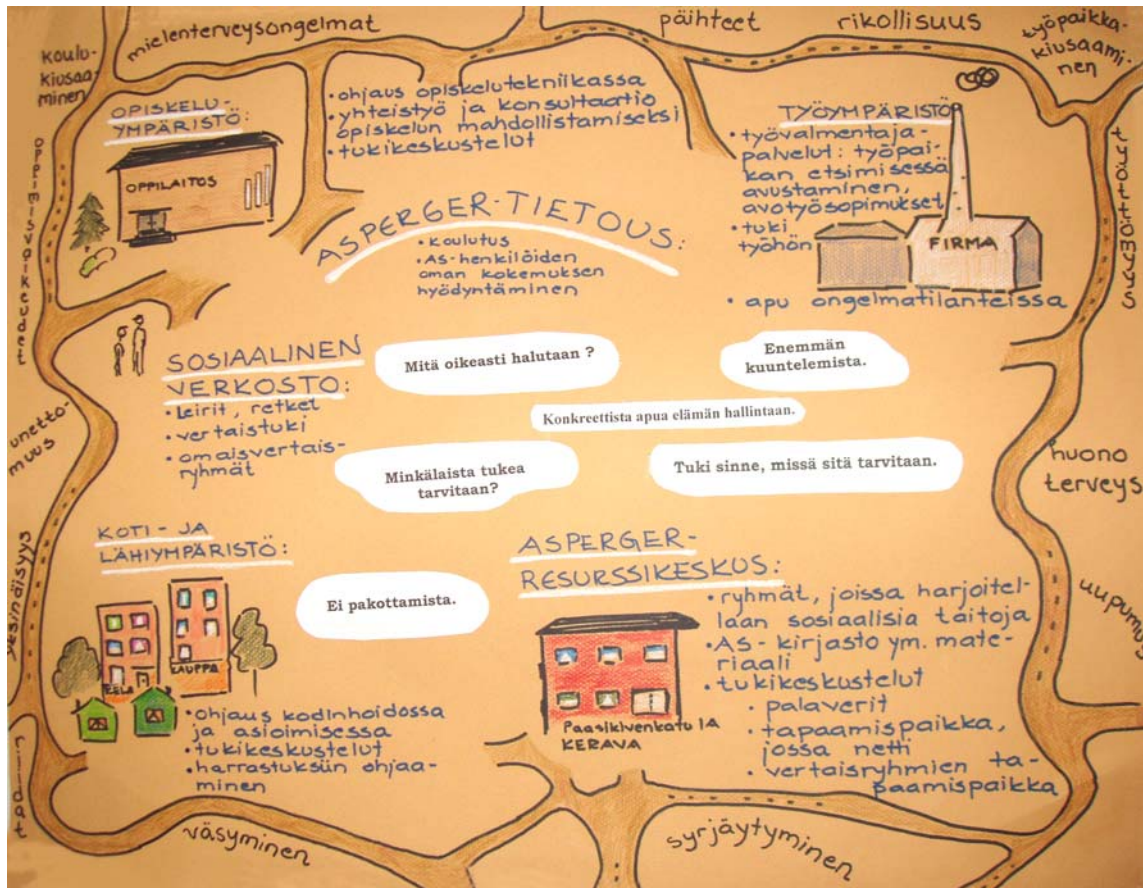 mielenterveysongelmat
päihteet
rikollisuus
työpaikka-
kiusaami-
nen
koulu-
kiusaa-
minen
OPISKELU-
YMPÄRISTÖ:
OPPILAITOS
• ohjaus opiskelutekniikassa
• yhteistyö ja konsultaatio
opiskelun mahdollistamiseksi
• tukikeskustelut
TYÖYMPÄRISTÖ
• työvalmentaja-
palvelut: työpai-
kan etsimisessä
avustaminen,
avotyösopimukset
• tuki
työhön
FIRMA
• apu ongelmatilanteissa
työttömyys
oppimisvaikeudet
ASPERGER-TIETOUS:
• koulutus
• AS-henkilöiden
oman kokemuksen
hyödyntäminen
SOSIAALINEN
VERKOSTO:
• Leirit, retket
• vertaistuki
• omaisvertais-
ryhmät
Mitä oikeasti halutaan ?
Enemmän
kuuntelemista.
Konkreettista apua elämän hallintaan.
Minkälaista tukea
tarvitaan?
Tuki sinne, missä sitä tarvitaan.
unetto-
muus
huono
terveys
yksinäisyys
uupumus
KOTI- JA
LÄHIYMPÄRISTÖ:
KAUPPA
KELA
• ohjaus kodinhoidossa
ja asioimisessa
• tukikeskustelut
• harrastuksiin ohjaa-
minen
Ei pakottamista.
ASPERGER-
RESURSSIKESKUS:
• ryhmät, joissa harjoitel-
laan sosiaalisia taitoja
• AS-kirjasto ym. mate-
riaali
• tukikeskustelut
• palaverit
• tapaamispaikka,
jossa netti
• vertaisryhmien ta-
paamispaikka
Paasikivenkatu 1A
KERAVA
väsyminen
syrjäytyminen